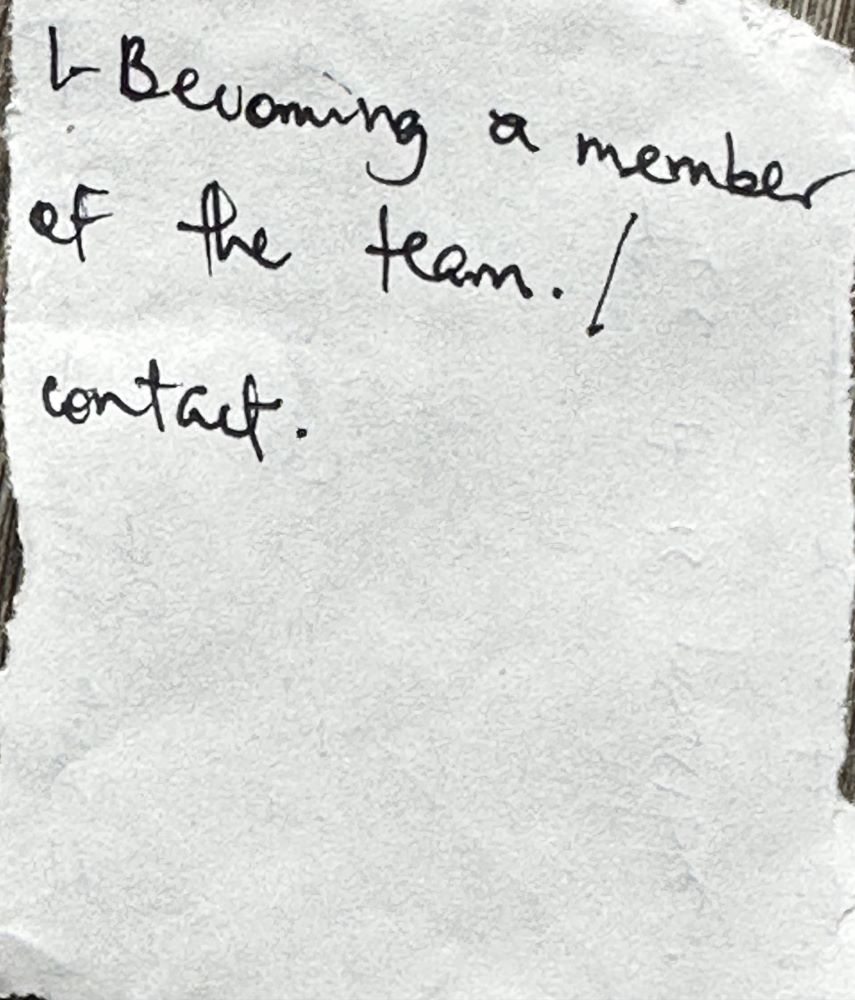 - Becoming a member
of the team. /
contact.